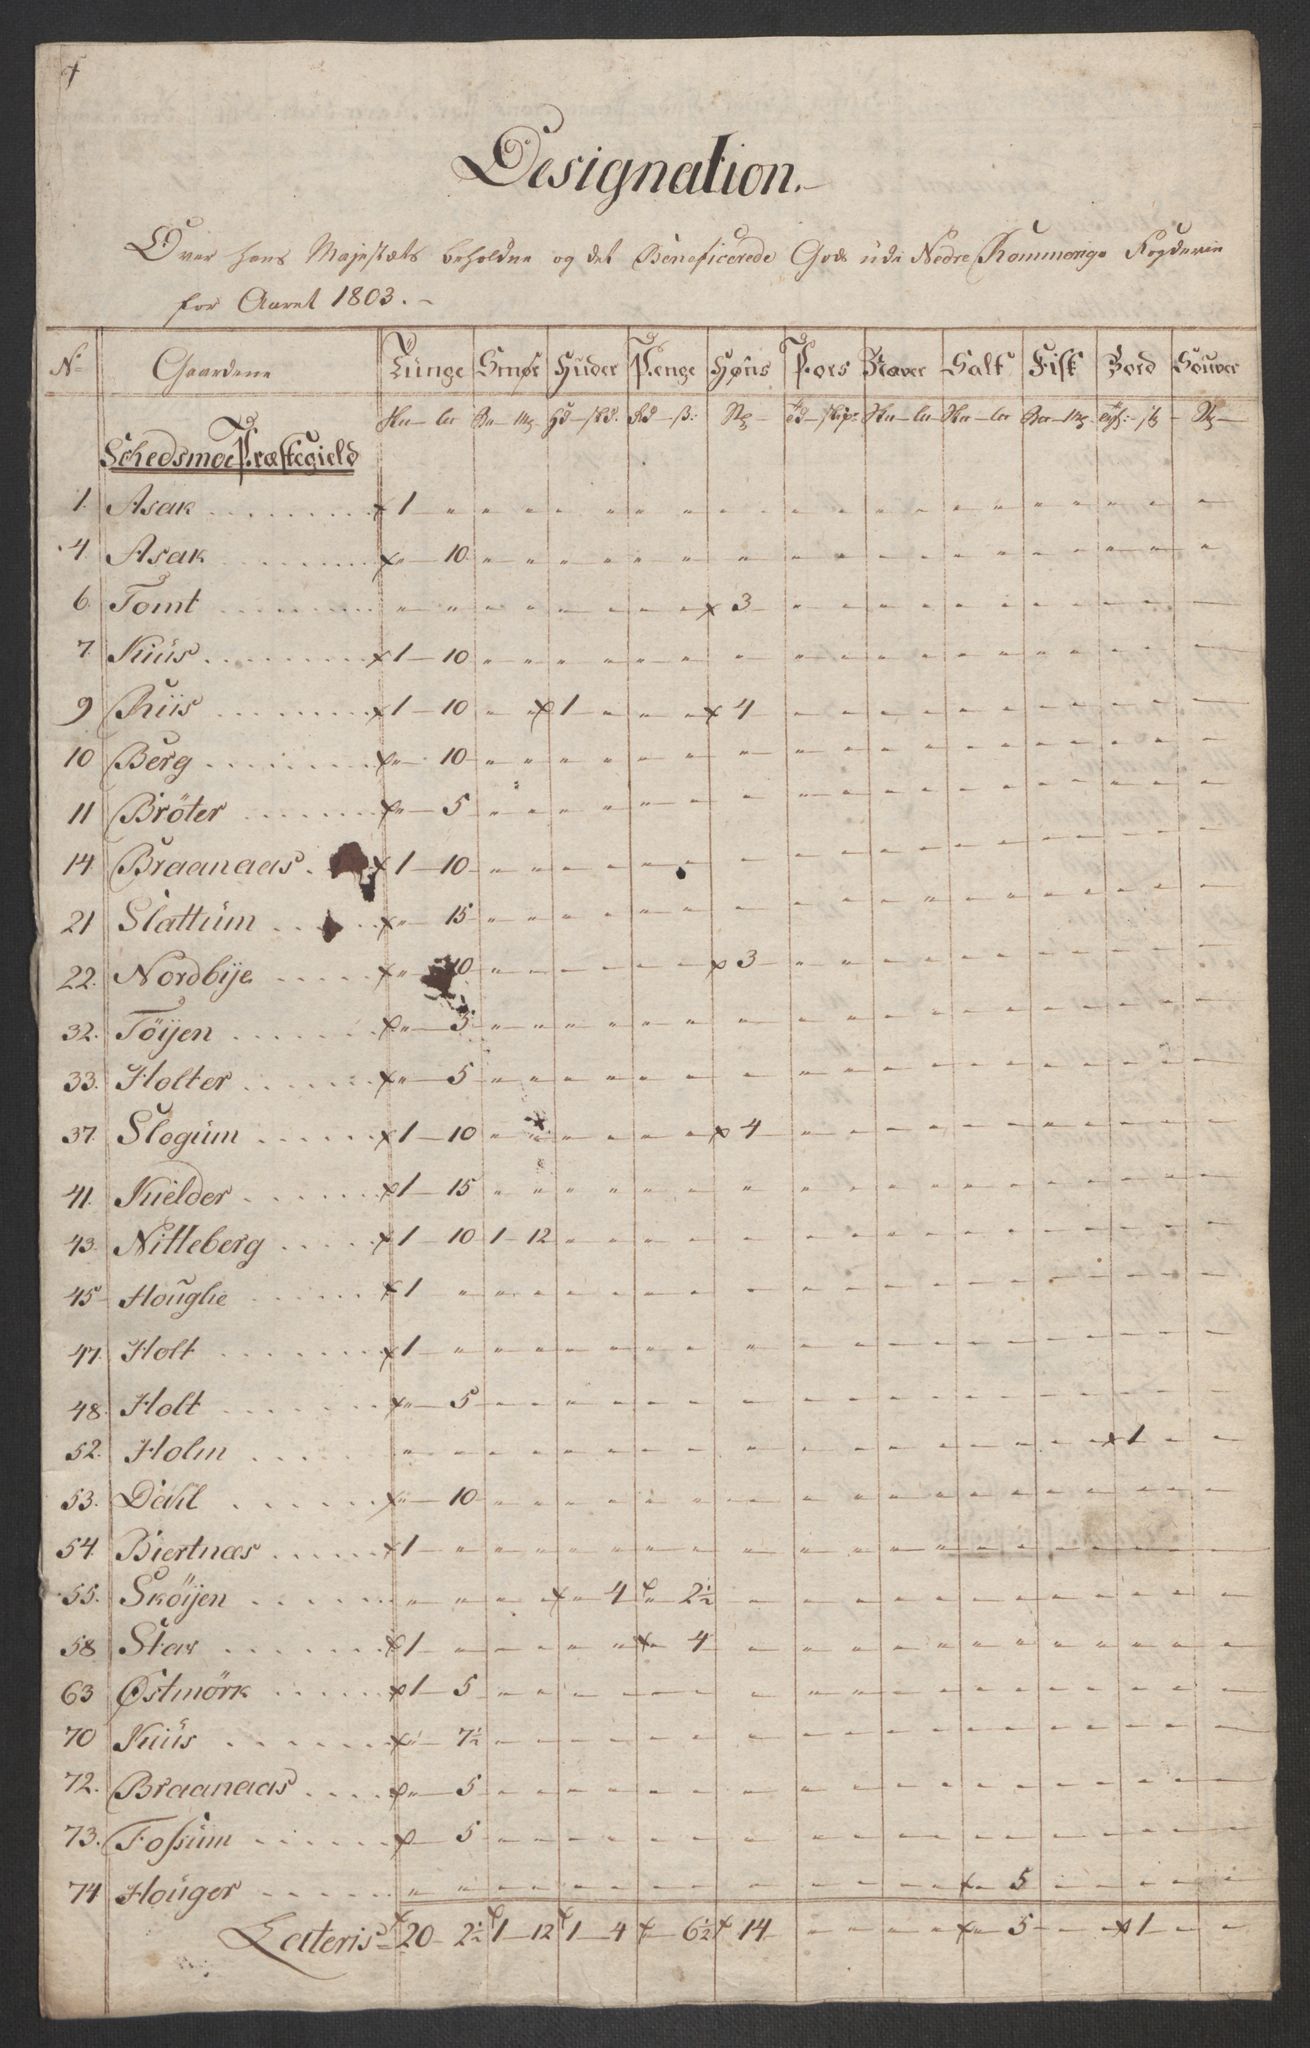 Designation.
Over hans Majestæts beholdne og det Beneficerede Gods udi Nedre Rommerige Fogderie
for Aaret 1803.
No Gaardene Tunge Smør Huder Penge Høns Kors Haver Salt Fisk Bord Souver
Schedsmoe Præstegield
1. Asak 1
4. Asak " 10
6. Tomt 3
7. Huus 1 10
9 Riis 1 10 1 4
10 Berg " 10
11 Bröter " 5
14 Braanaas 1 10
21 Slattum " 15
22. Nordbÿe " 10 3
32. Töÿen " 5
33. Holter " 5
37. Slogum 1 10 4
41. Kielder 1 15
43. Nitteberg 1 10 1 12
45 Houglie 1
47. Holt 1
48. Holt " 5
52. Holm 1
53. Dahl " 10
54. Biertnæs 1
55. Sköÿen " 4 " 2½
58 Stav 1 4
63 Östmörk 1 5
70 Huus " 7½
72. Braanaas " 5
73. Fossum 5
74 Houger 5
Lateris 20 2½ 1 12 1 4 6½ 14 5 1